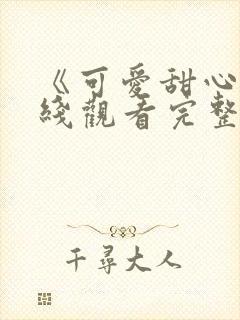 《可愛甜心
綫觀看完整
千尋大人